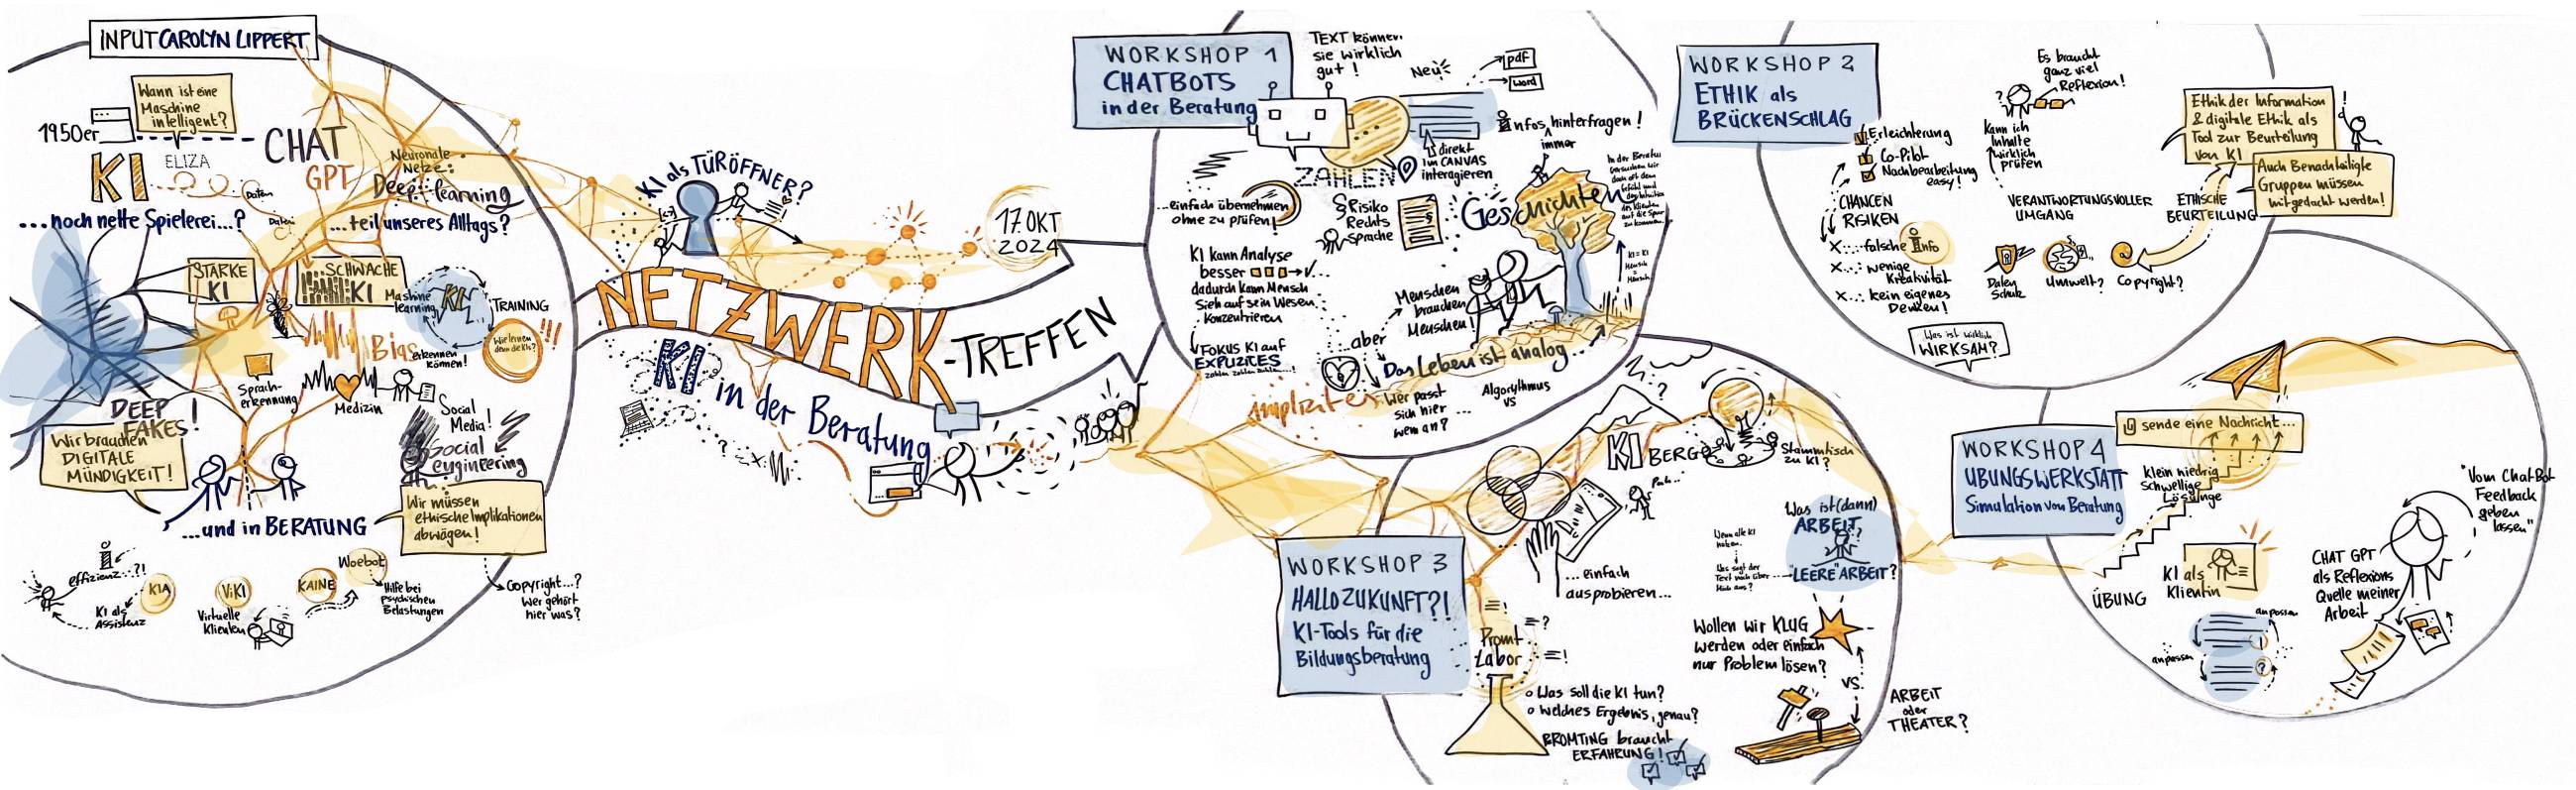 INPUT CAROLYN LIPPERT
Wann ist eine
Maschine
intelligent?
1950er
KI
ELIZA
CHAT
GPT
Daten
Daten
Neuronale
Netze:
Deep learning
...noch nette Spielerei...?
...teil unseres Alltags?
STARKE
KI
SCHWACHE
KI
Mashine
learning
KI
TRAINING
Wie lernen
denn die KIs?
!!!
Bias erkennen
können!
Sprach-
erkennung
Medizin
Social
Media!
Social
engineering
DEEP
FAKES!
Wir brauchen
DIGITALE
MÜNDIGKEIT!
...und in BERATUNG
Wir müssen
ethische Implikationen
abwägen!
effizienz...?!
KI als
Assistenz
KIA
ViKI
Virtuelle
Klienten
KAINE
Woebot
Hilfe bei
psychischen
Belastungen
Copyright...?
Wer gehört
hier was?
KI als TÜRÖFFNER?
17. OKT
2024
NETZWERK-TREFFEN
KI in der Beratung
WORKSHOP 1
CHATBOTS
in der Beratung
TEXT können
sie wirklich
gut!
Neu
pdf
word
Infos hinterfragen!
immer
direkt
im CANVAS
interagieren
ZAHLEN
...einfach übernehmen
ohne zu prüfen!
§ Risiko
Rechts
sprache
Geschichten
KI kann Analyse
besser
dadurch kann Mensch
sich auf sein Wesen
konzentrieren
KI = KI
Mensch
=
Mensch
Menschen
brauchen
Menschen!
FOKUS KI auf
EXPLIZITES
zahlen zahlen zahlen...!
...aber
Das Leben ist analog...
implizites
Wer passt
sich hier
wem an?
...
Algorythmus
VS
WORKSHOP 2
ETHIK als
BRÜCKENSCHLAG
Erleichterung
Co-Pilot
Nachbearbeitung
easy!
CHANCEN
RISIKEN
X...: falsche Info
X...: wenige
Kreativität
X...: kein eigenes
Denken!
Was ist wirklich
WIRKSAM?
Es braucht
ganz viel
Reflexion!
?
Kann ich
Inhalte
wirklich
prüfen
VERANTWORTUNGSVOLLER
UMGANG
Daten
Schutz
Umwelt?
Copyright?
ETHISCHE
BEURTEILUNG
Ethik der Information
& digitale Ethik als
Tool zur Beurteilung
von KI
!
Auch Benachteiligte
Gruppen müssen
mitgedacht werden!
WORKSHOP 3
HALLO ZUKUNFT?!
KI-Tools für die
Bildungsberatung
KI BERGE
...?
Puh...
Stammtisch
zu KI?
...einfach
ausprobieren...
Was ist (dann)
ARBEIT?
"LEERE" ARBEIT?
Wenn alle KI
nutzen.
Was sagt der
Text noch über
Mich aus?
Promt
Labor
=!
=?
=!
o Was soll die KI tun?
o Welches Ergebnis, genau?
BROMTING braucht
ERFAHRUNG!
Wollen wir KLUG
werden oder einfach
nur Problem lösen?
VS.
ARBEIT
oder
THEATER?
WORKSHOP 4
ÜBUNGSWERKSTATT
Simulation von Beratung
sende eine Nachricht...
klein niedrig
schwellige
Lösunge
ÜBUNG
KI als
Klientin
anpassen
anpassen
?
CHAT GPT
als Reflexions
Quelle meiner
Arbeit
"Vom ChatBot
Feedback
geben
lassen"